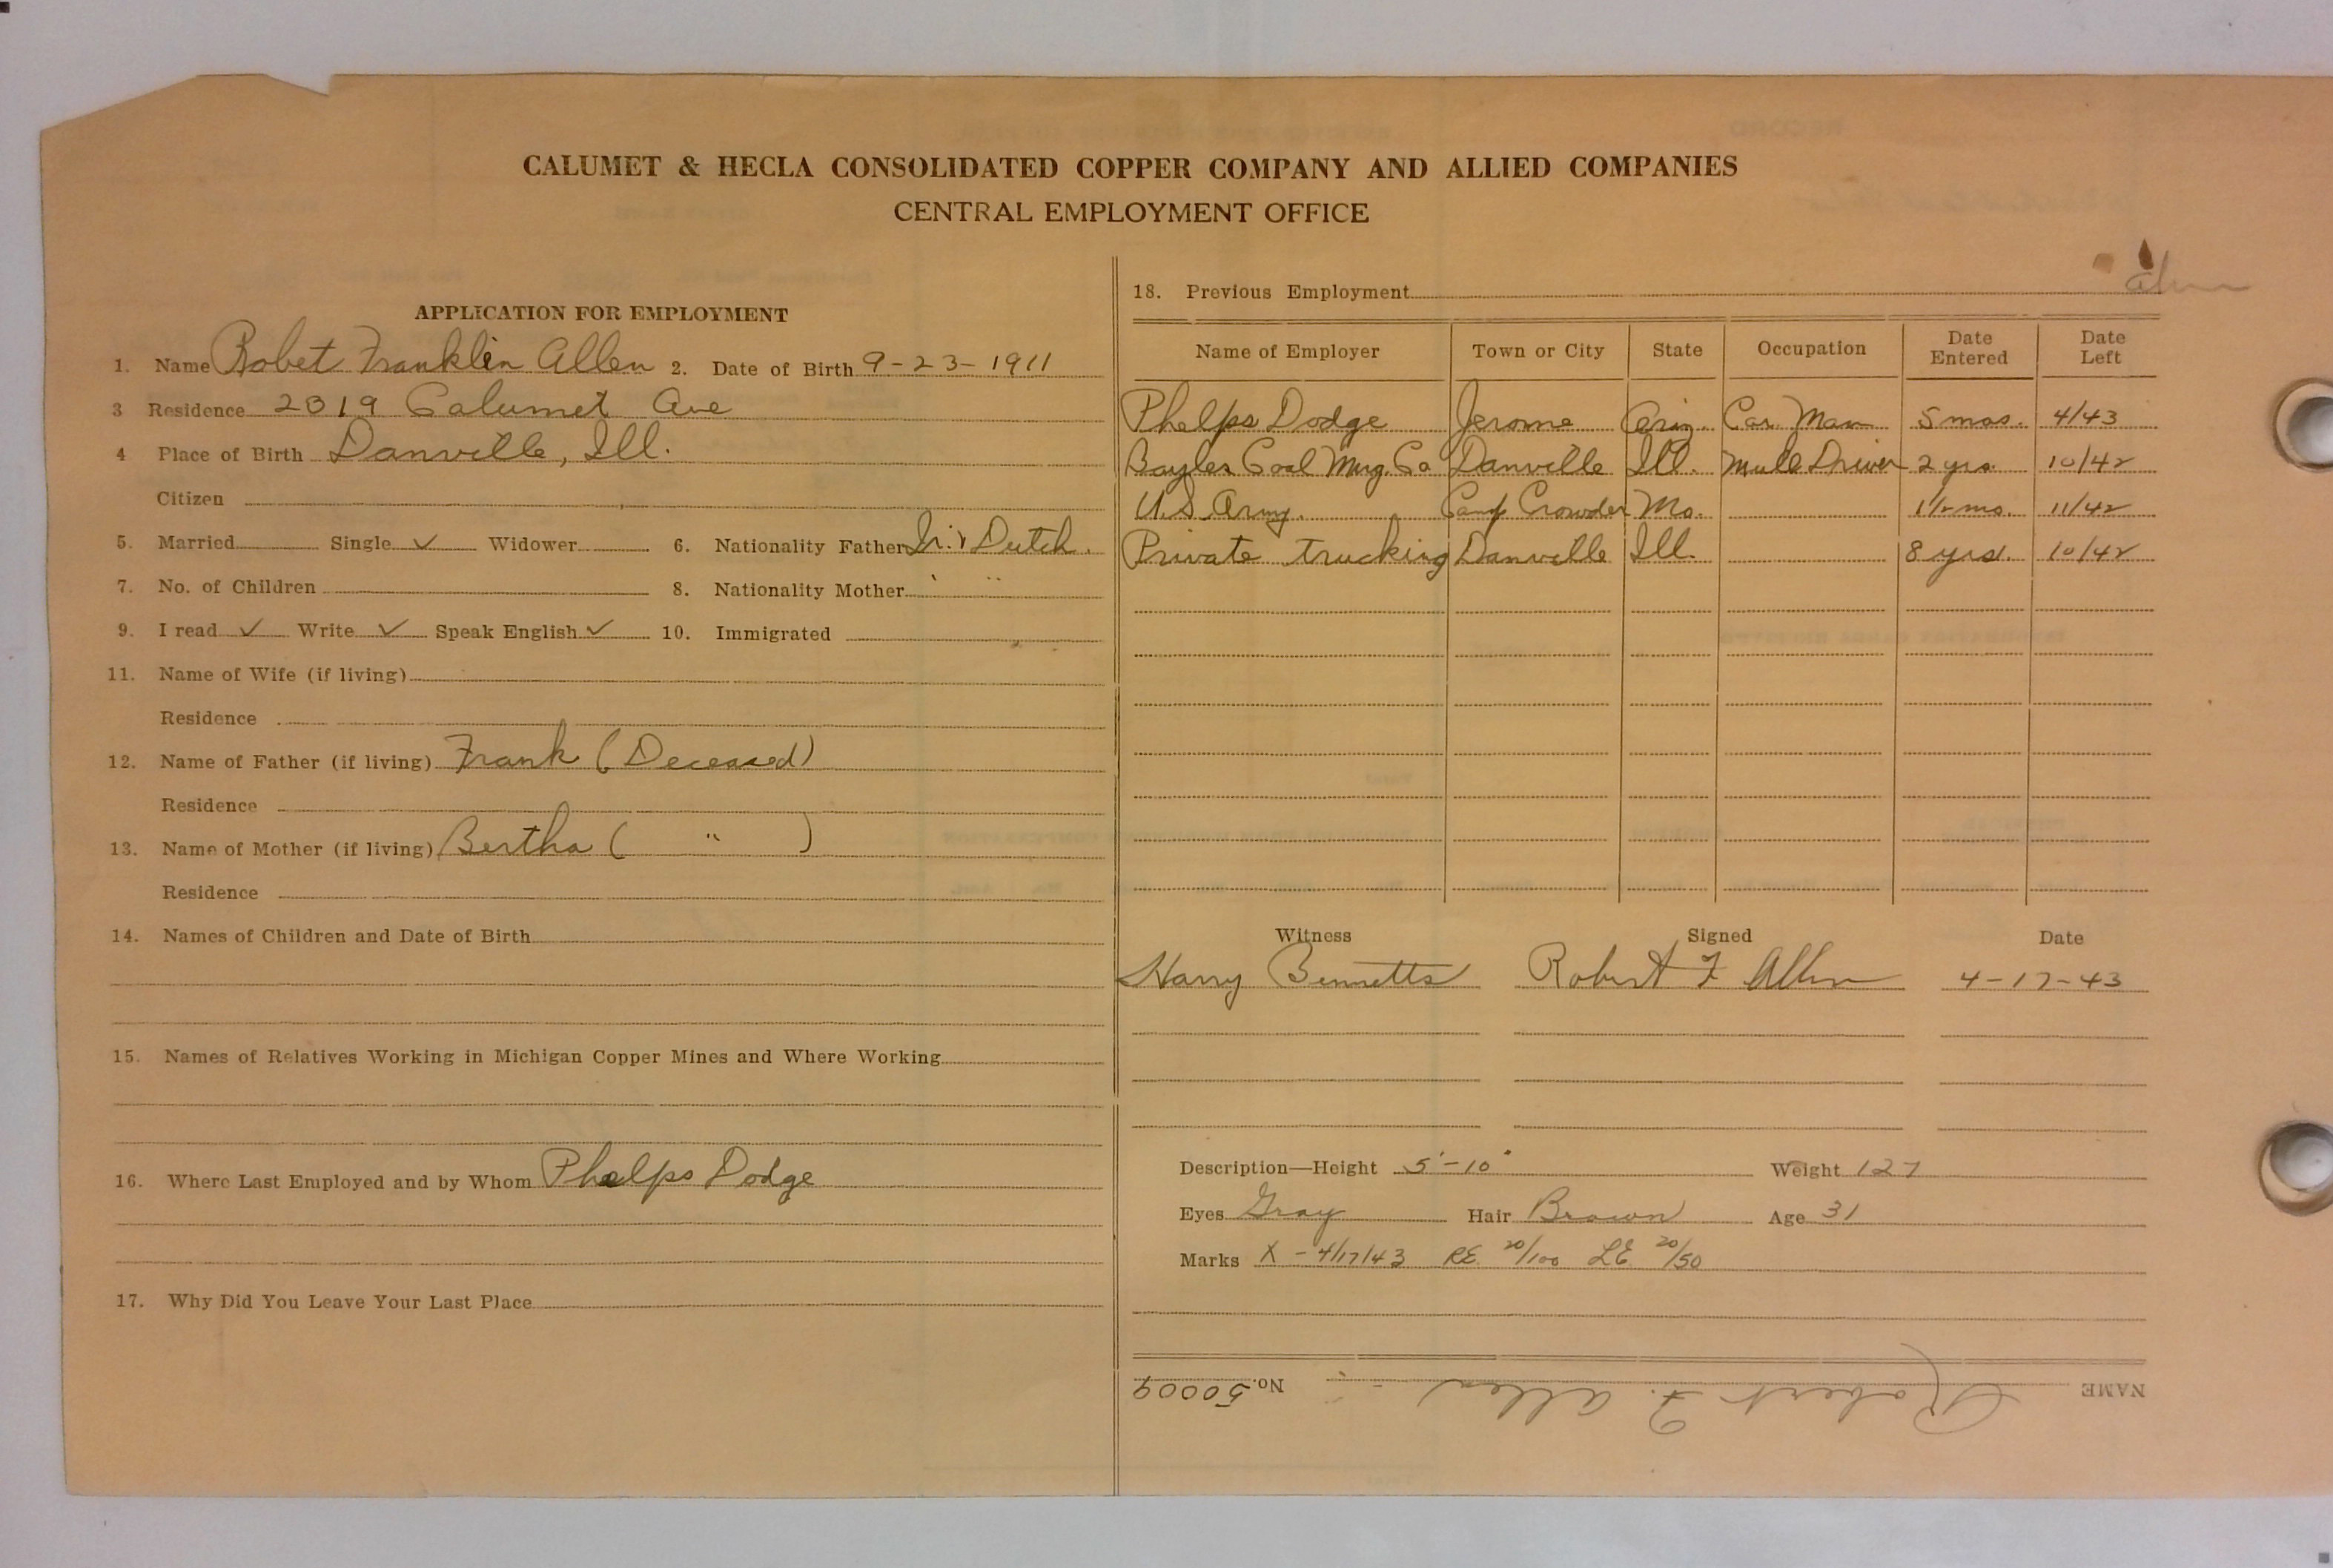 CALUMET & HECLA CONSOLIDATED COPPER COMPANY AND ALLIED COMPANIES
CENTRAL EMPLOYMENT OFFICE
APPLICATION FOR EMPLOYMENT
1. Name Robet Franklin Allen 2. Date of Birth 9-23-1911
3 Residence 2319 Calumet Ave
4 Place of Birth Danville, Ill.
Citizen
5. Married Single ✓ Widower 6. Nationality Father Ir. & Dutch.
7. No. of Children 8. Nationality Mother " "
9. I read ✓ Write ✓ Speak English ✓ 10. Immigrated
11. Name of Wife (if living)
Residence
12. Name of Father (if living) Frank (Deceased)
Residence
13. Name of Mother (if living) Bertha ( " )
Residence
14. Names of Children and Date of Birth
15. Names of Relatives Working in Michigan Copper Mines and Where Working
16. Where Last Employed and by Whom Phelps Dodge
17. Why Did You Leave Your Last Place
18. Previous Employment
Name of Employer Town or City State Occupation Date Entered Date Left
Phelps Dodge Jerome Ariz. Car Man 5 mos. 4/43
Coal Mng. Co Danville Ill. Mule Driver 2 yrs. 10/42
U.S. Army. Camp Crowder Mo. 1½ mo. 11/42
Private trucking Danville Ill. 8 yrs. 10/42
Witness Signed Date
Harry Bennetts Robert F Allen 4-17-43
Description—Height 5'-10" Weight 127
Eyes Gray Hair Brown Age 31
Marks X - 4/17/43 RE 20/100 LE 20/50
NAME Robert F. Allen No. 50009